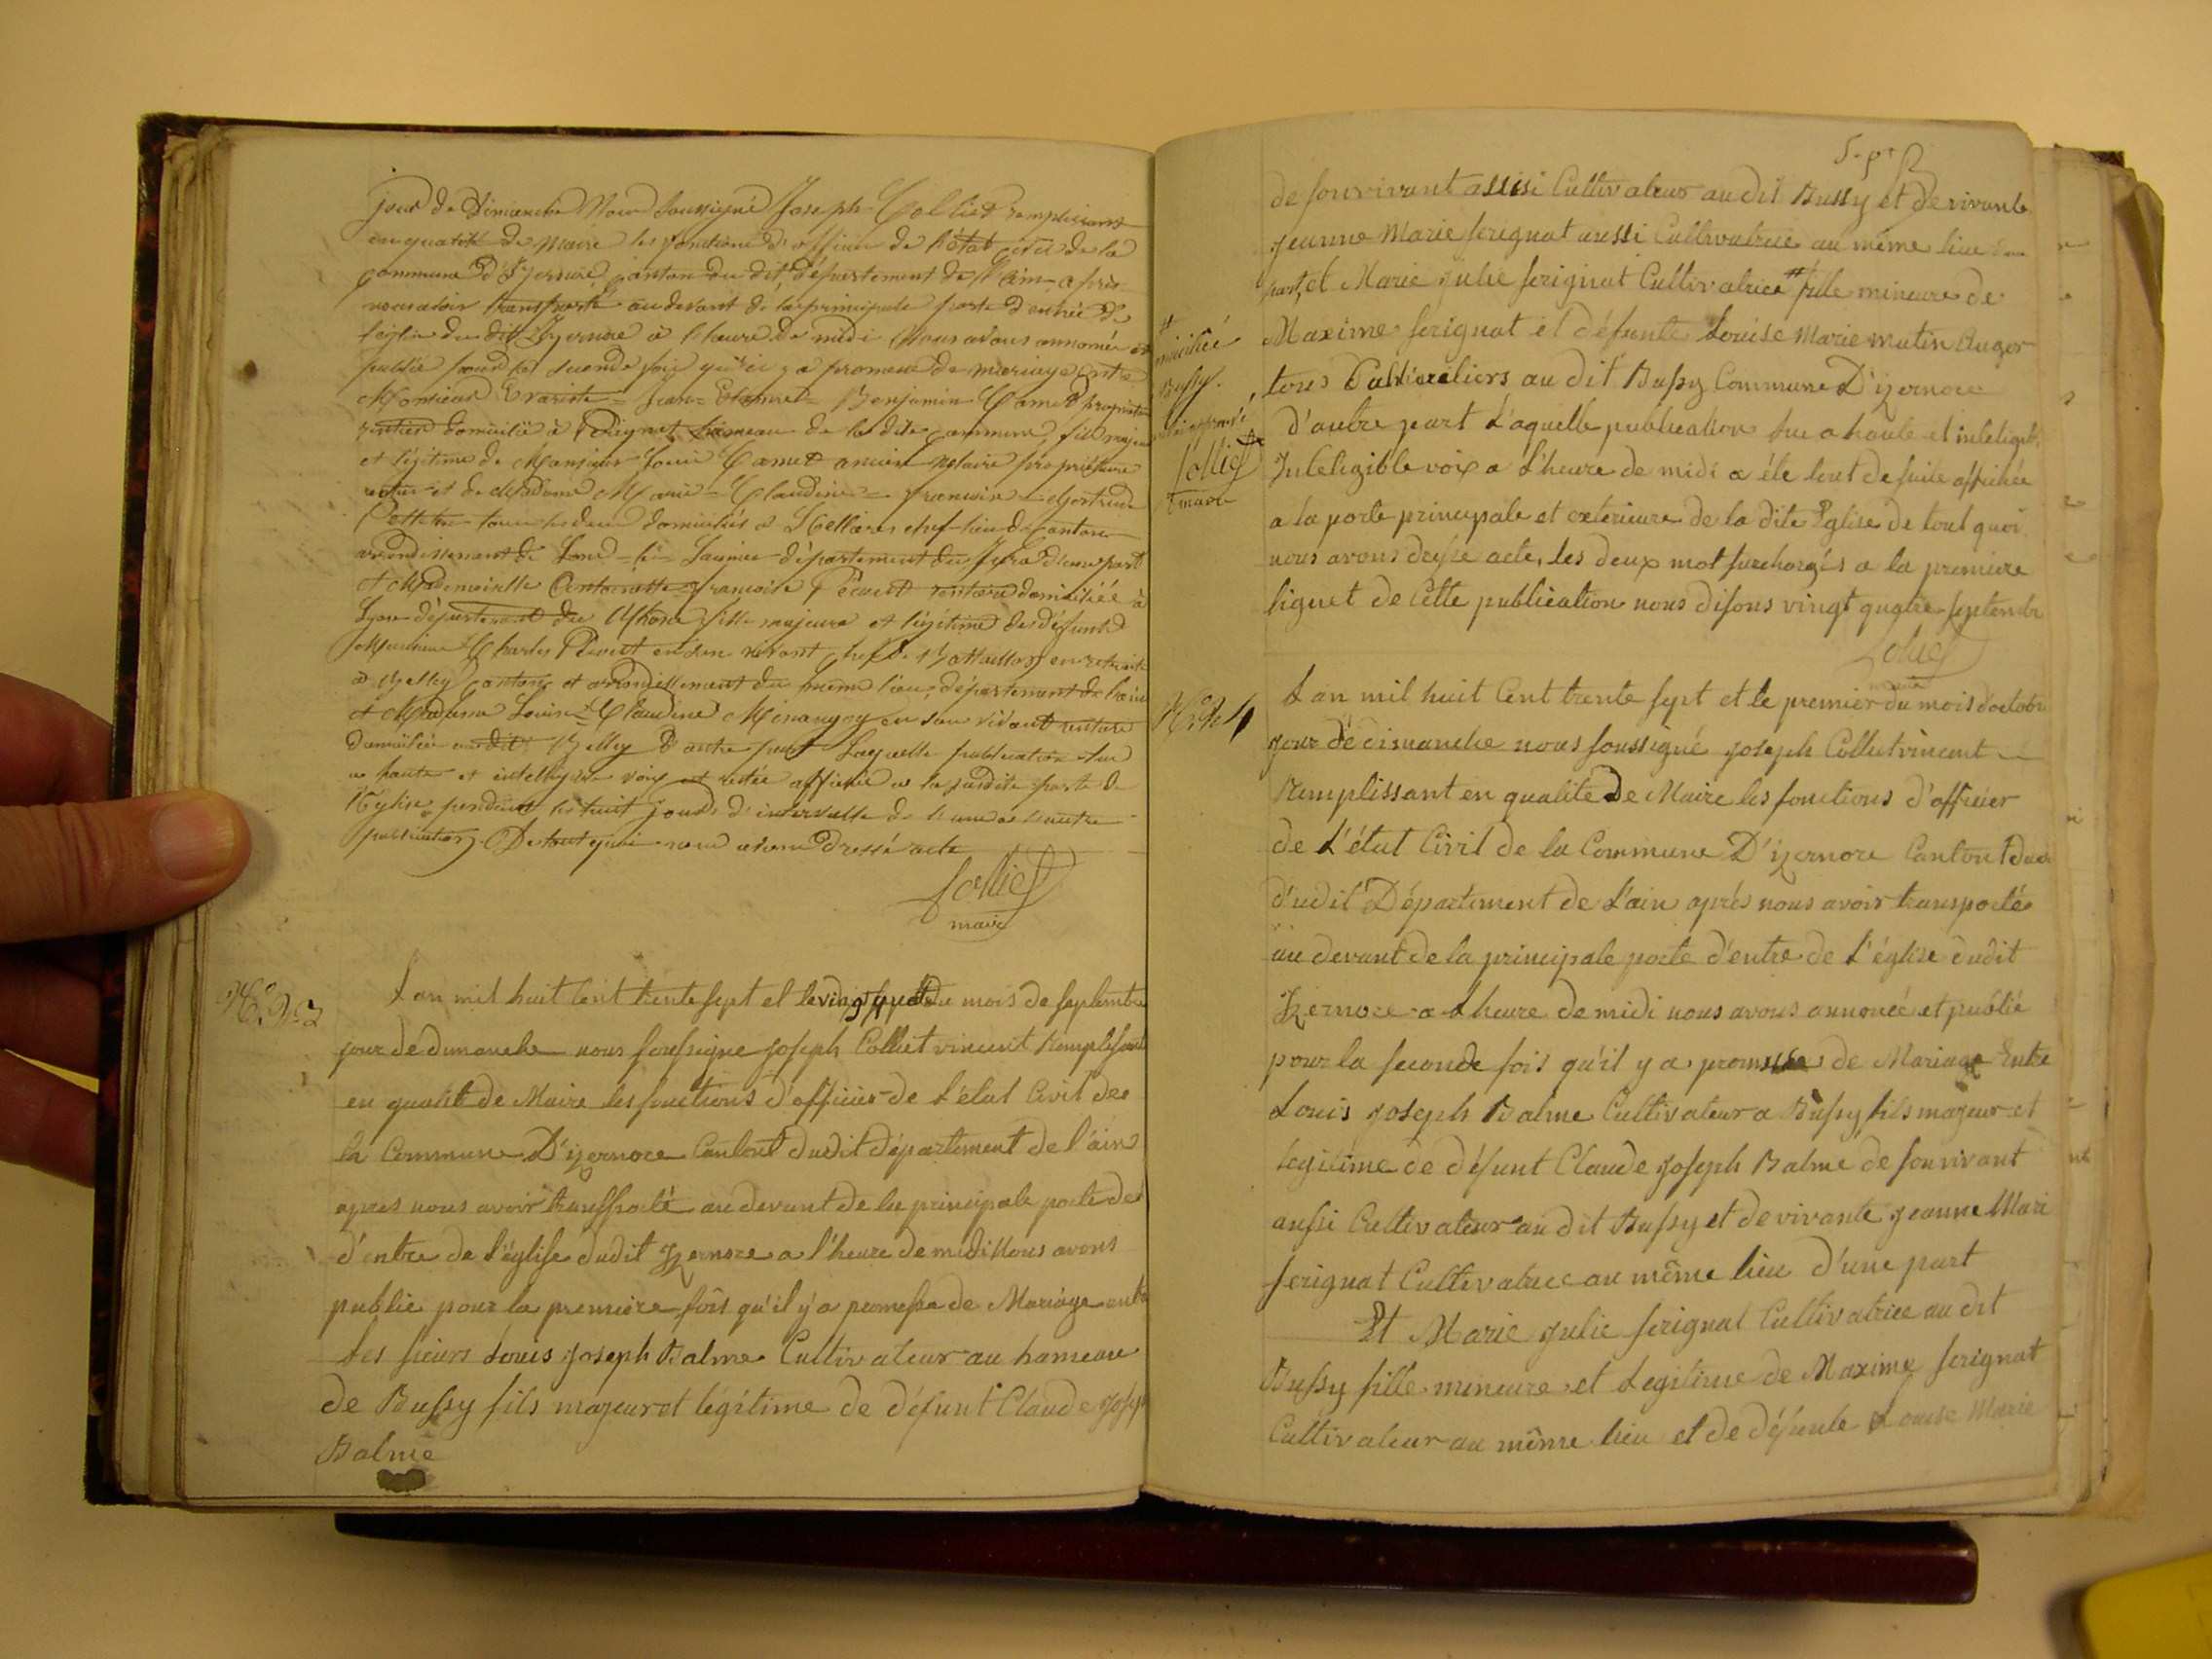 jour de Dimanche Nous Soussigné Joseph Colliet remplissant
en qualité de Maire les fonctions d'officier de l'état civil de la
commune d'Izernore, canton du dit, département de l'ain - après
nous avoir transporté au devant de la principale porte d'entrée de
l'église du dit Izernore à l'heure de midi Nous avons annoncé et
publié pour la seconde fois qu'il y a promesse de mariage entre
Monsieur Evariste = Jean = = Benjamin Camet propriétaire
rentier domicilié à hameau de la dite commune, fils majeur
et légitime de Monsieur Louis Camet ancien Notaire propriétaire
rentier et de Madame Marie = Claudine = françoise =
tous les deux domiciliés à chef-lieu de canton
arrondissement de Lons-le-Saunier département du Jura d'une part
et Mademoiselle Antoinette françoise rentière domiciliée à
Lyon département du Rhône fille majeure et légitime de défunt
Monsieur Charles en son vivant chef de Bataillon en retraite
à Belley canton et arrondissement du même lieu, département de l'ain
et Madame Louise Claudine en son vivant rentière
Domiciliée audit Belley d'autre part Laquelle publication lue
a haute et intelligible voix et restée affichée a la susdite porte de
l'Eglise pendant les huit jours d'intervalle de l'une a l'autre
publication De tout quoi nous avons dressé acte
Colliet
maire
N.º 3
L an mil huit Cent trente sept et le vingt quatre du mois de septembre
jour de dimanche nous soussigne joseph Colliet vincent Remplissant
en qualité de Maire les fonctions d'officier de L'état Civil de
la Commune D'izernore Canton dudit département de l'ain
apres nous avoir transporté au devant de la principale porte de
d'entre de l'église dudit Izernore a l'heure de midi Nous avons
publie pour la premiere fois qu'il y a promesse de Mariage entre
Les sieurs Louis joseph Balme Cultivateur au hameau
de Bussy fils majeur et légitime de défunt Claude joseph
Balme
5.
de son vivant assisi Cultivateur au dit Bussy et de vivante
jeanne Marie serignat aussi Cultivatrice au même lieu d'une
part, et Marie julie serignat Cultivatrice # fille mineure de
Maxime serignat et défunte Louise Marie mutin Auger
tous Cultivateurs au dit Bussy Commune D'izernore
d'autre part L'aquelle publication lue a haute et inteligib
Inteligible voix a L'heure de midi a éte tout de suite affichée
a la porte principale et exterieure de la dite Eglise de tout quoi
nous avons dressé acte, Les deux mot surchargés a la premiere
ligne et de Cette publication nous disons vingt quatre septembre
Colliet
maire
#
domiciliée
Bussy.
approuvé
Colliet
maire
N.º 4
L an mil huit Cent trente sept et le premier du mois d'octobre
jour de dimanche nous soussigné joseph Colliet vincent
Remplissant en qualité De Maire les fonctions d'officier
de L'état Civil de la Commune D'izernore Canton
d'udit Département de L'ain après nous avoir transporté
au devant de la principale porte d'entre de L'église dudit
Izernore a L'heure de midi nous avons annoncé et publié
pour la seconde fois qu'il y a promesse de Mariage Entre
Louis joseph Balme Cultivateur a Bussy fils majeur et
legitime de défunt Claude joseph Balme de son vivant
aussi Cultivateur au dit Bussy et de vivante jeanne Mari
serignat Cultivatrice au même lieu d'une part
Et Marie julie serignat Cultivatrice au dit
Bussy fille mineure et Legitime de Maxime serignat
Cultivateur au même lieu et de défunte Louise Marie